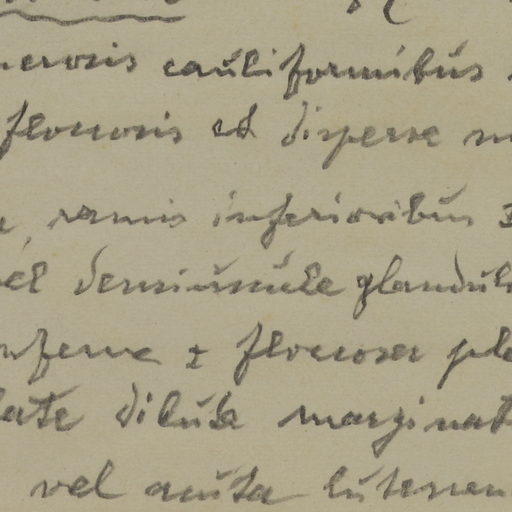 nerosis cauliformibus
floccosis et disperse
ramis inferioribus
vel densiuscule glandul
inferne ± floccosa
late dilute marginat
vel acuta lutescen